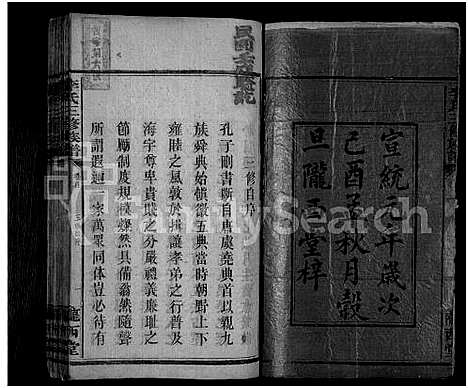 宣統元年歲次
己酉孟秋月穀
旦隴西堂梓
李氏三修族譜
三修自序
孔子刪書斷自唐虞堯典首以親九
族舜典始慎徽五典當時朝野上下
雍睦之風敦於揖讓孝弟之行普及
海宇尊卑貴賤之分嚴禮義廉恥之
節勵制度規模燦然具備翁然隨聲
所謂遐邇一家萬眾同体豈必待有
隴西堂
FamilySearch